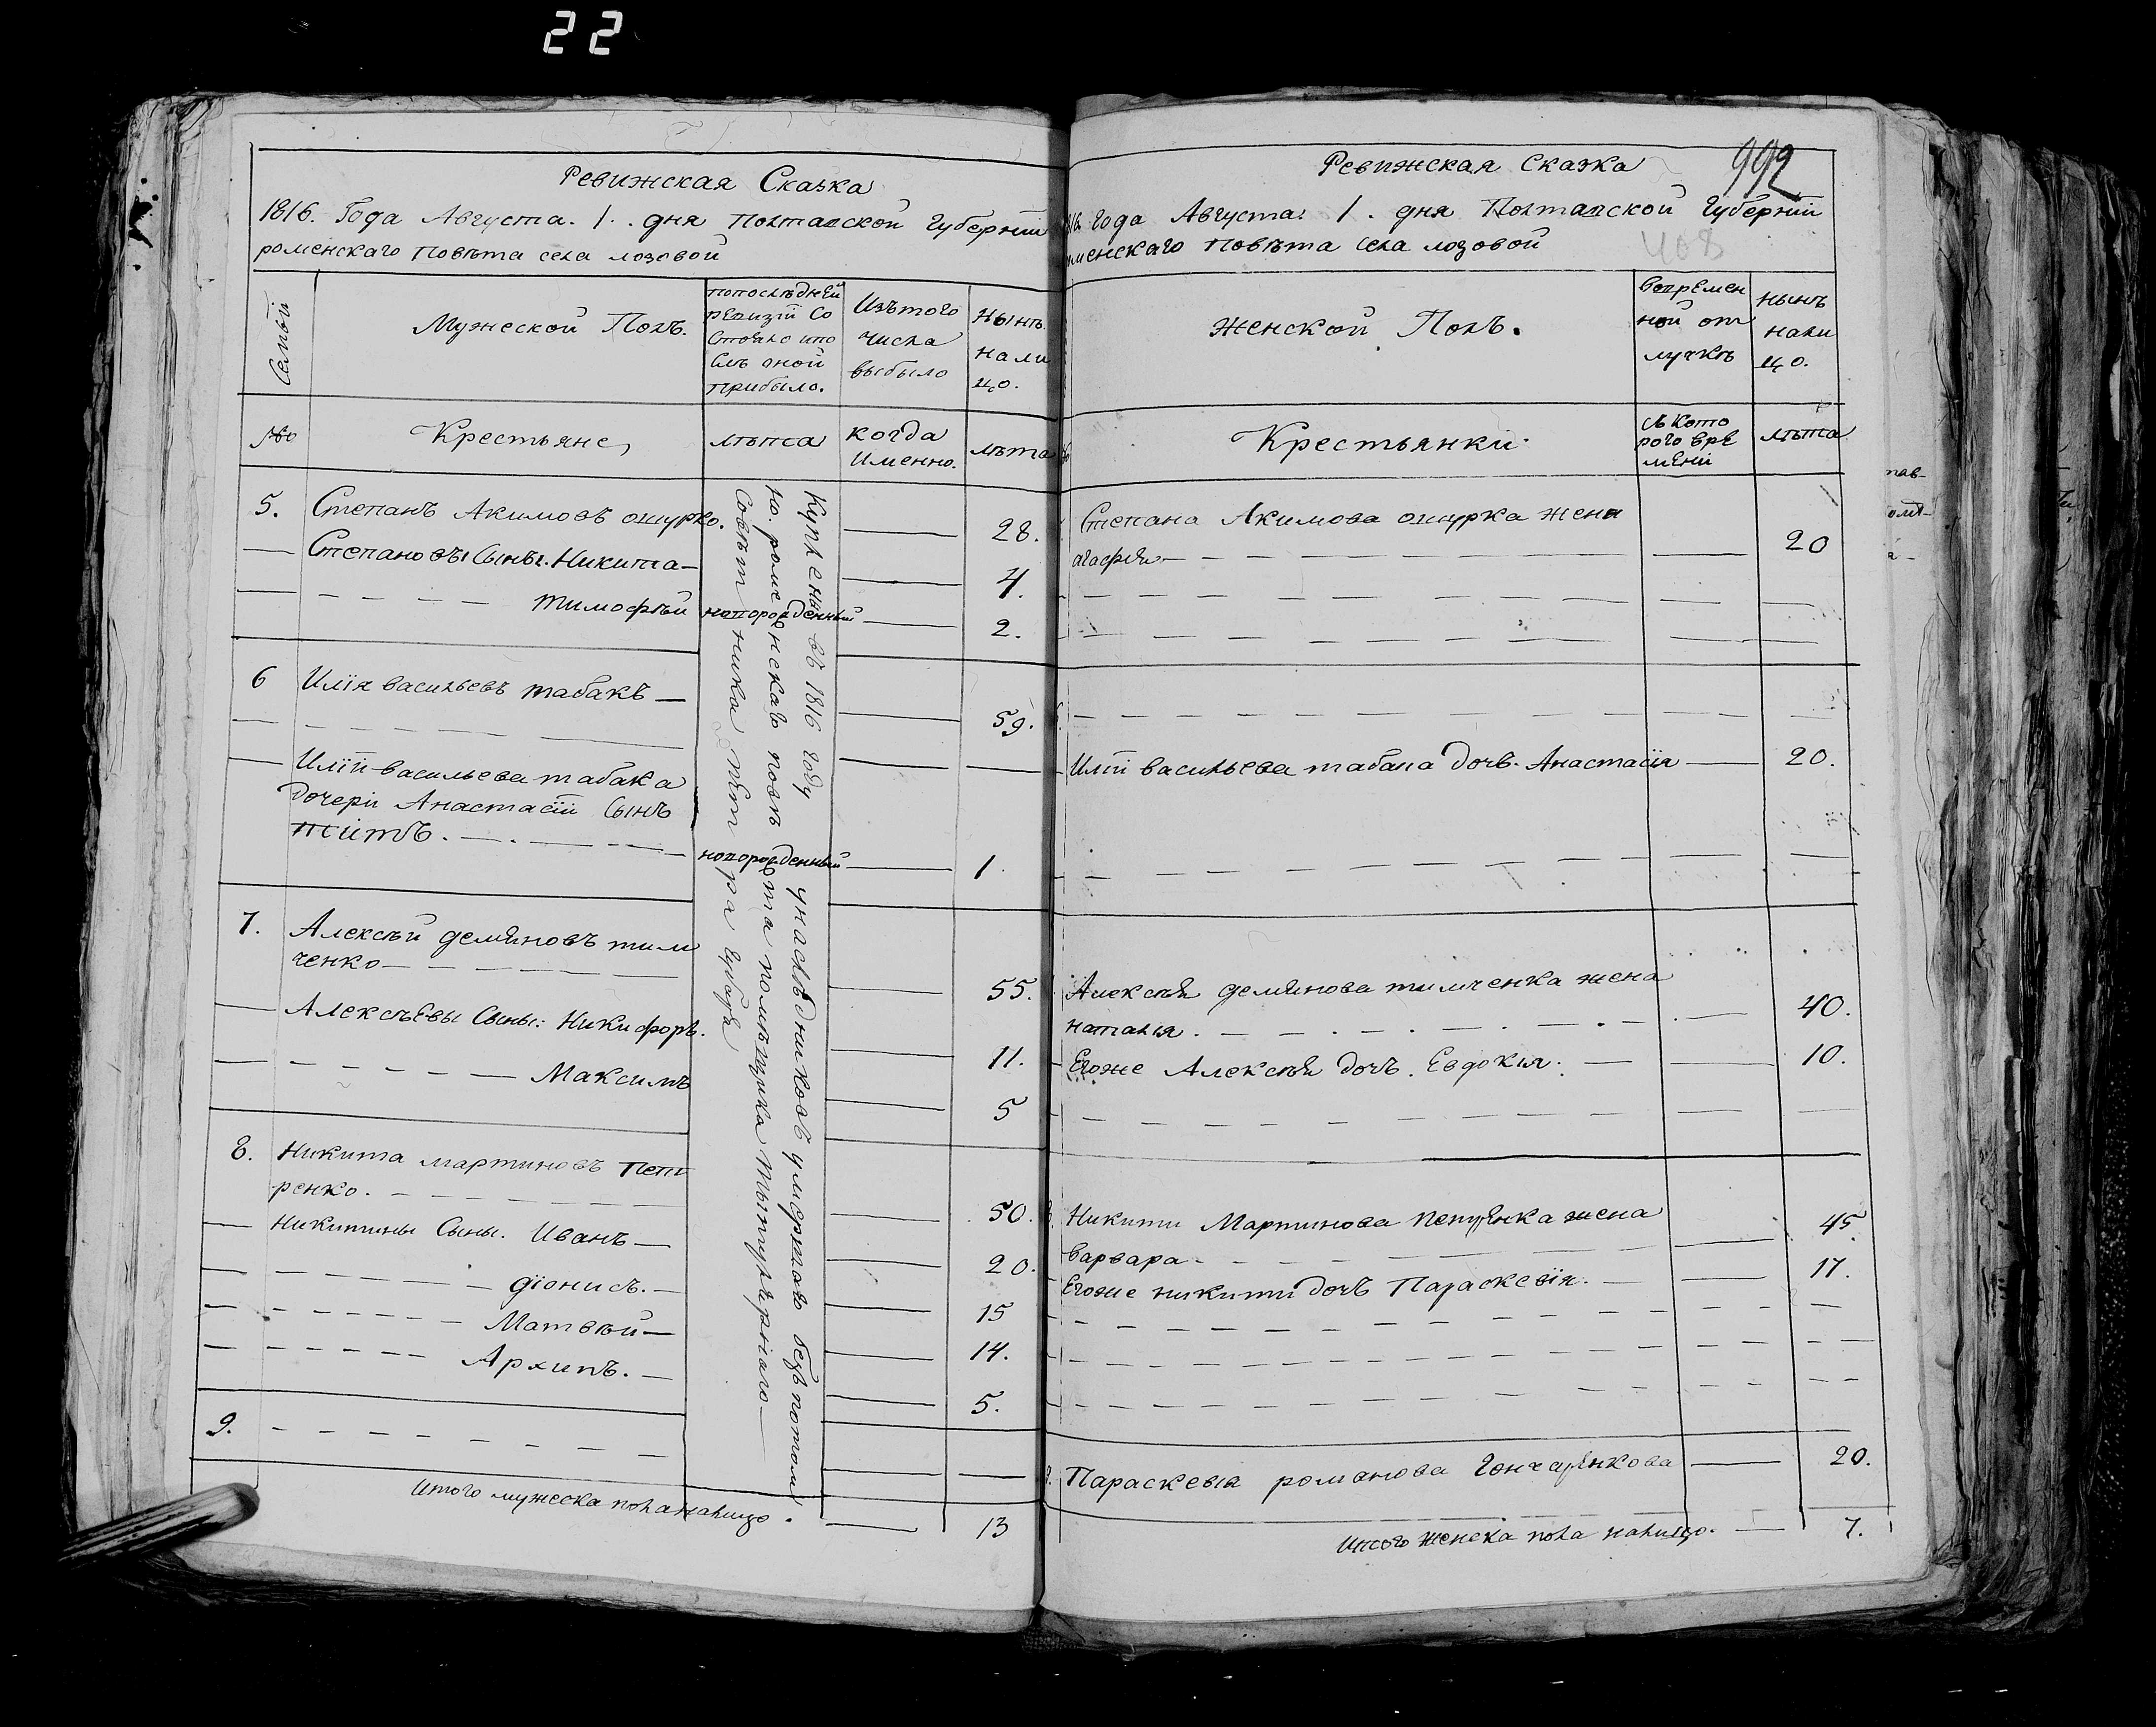 22
Ревижская Сказка
1816. Года Августа. 1. дня Полтавской Губернїи
роменскаго Повѣта села лозовой
Семьи
Мужеской Полъ.
попослѣдней
ревизїи Со
стояло ипо
слѣ оной
прибыло.
Изътого
числа
выбыло
Нынѣ
нали
цо.
№
Крестьяне,
лѣта
когда
Именно.
лѣта
5. Степанъ Акимовъ ошурко. 28.
Степановы Сыны. Никита 4.
Тимофѣй новорожденный 2.
6 Илїя васильевъ табакъ 59.
Илїи васильева табака
дочери Анастасїи Сынъ
титъ. новорожденный 1.
7. Алексѣй демяновъ тим
ченко 55.
Алексѣевы Сыны: Никифоръ. 11.
Максимъ 5
8. Никита мартиновъ Пет
ренко. 50.
Никитины Сыны. Иванъ 20.
дїонисъ. 15
Матвѣй 14.
Архипъ. 5.
9.
Купленны въ 1816 году у наслѣдниковъ умершаго безъ
но. роменскаго повѣта помѣщика
Совѣтника
Итого мужеска пола налицо. 13
Ревижская Сказка
992
408
Года Августа 1. дня Полтавской Губернїи
менскаго Повѣта села лозовой
Женской Полъ.
вовремен
ной от
лучкѣ
нынѣ
нали
цо.
Крестьянки
съ кото
рого вре
мени
лѣта
Степана Акимова ошурка жена
агафия 20
Илїи васильева табака дочь. Анастасїя 20.
Алексѣя демянова тимченка жена
наталия. 40.
Егоже Алексѣя дочь. Евдокия. 10.
Никити Мартинова петренка жена
варвара 45
Егоже никити дочь Параскевїя. 17.
Параскевия романова Гончаренкова 20.
Итого женска пола налицо. 7.